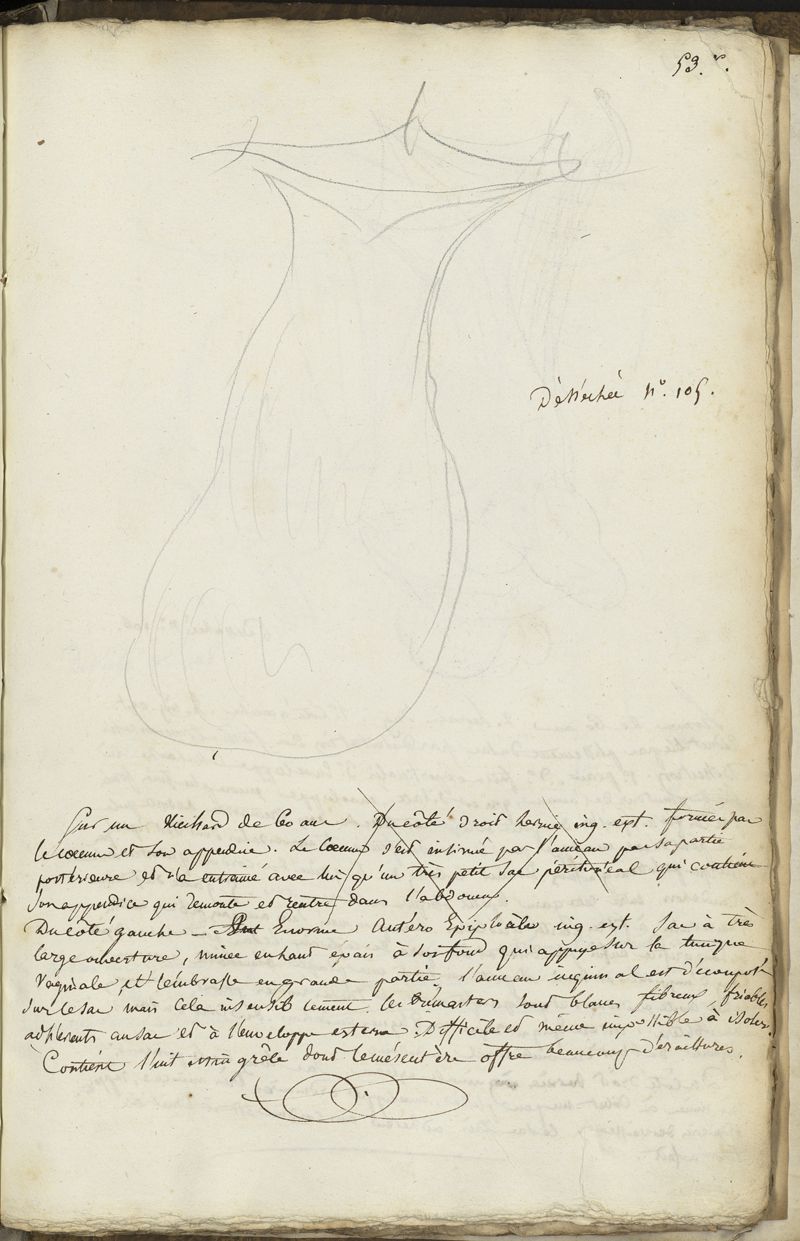 53. r.
Déssechée N°. 105.
Sur un Vieillard de 60 ans. Du côté droit hernie ing. ext. formée par
le cœcum et son appendice. Le Cœcum s'est insinué par l'anneau par sa partie
postérieure et n'a entrainé avec lui qu'un très petit sac péritonéal qui contient
son appendice qui remonte et rentre dans l'abdomen.
Du côté gauche - Enorme Antéro Epiplocèle ing. ext. Sac à très
large ouverture, mince en haut épais à son fond qui appuye sur la tunique
Vaginale, et l'embrasse en grande partie. L'anneau inguinal est
sur le sac, mais cela insensiblement. les crémasters sont blancs fibreux friables,
adhérents au sac et à l'enveloppe externe. Difficile et même impossible à isoler.
Contient l'intestin grêle dont le mésentère offre beaucoup d'éraillures.